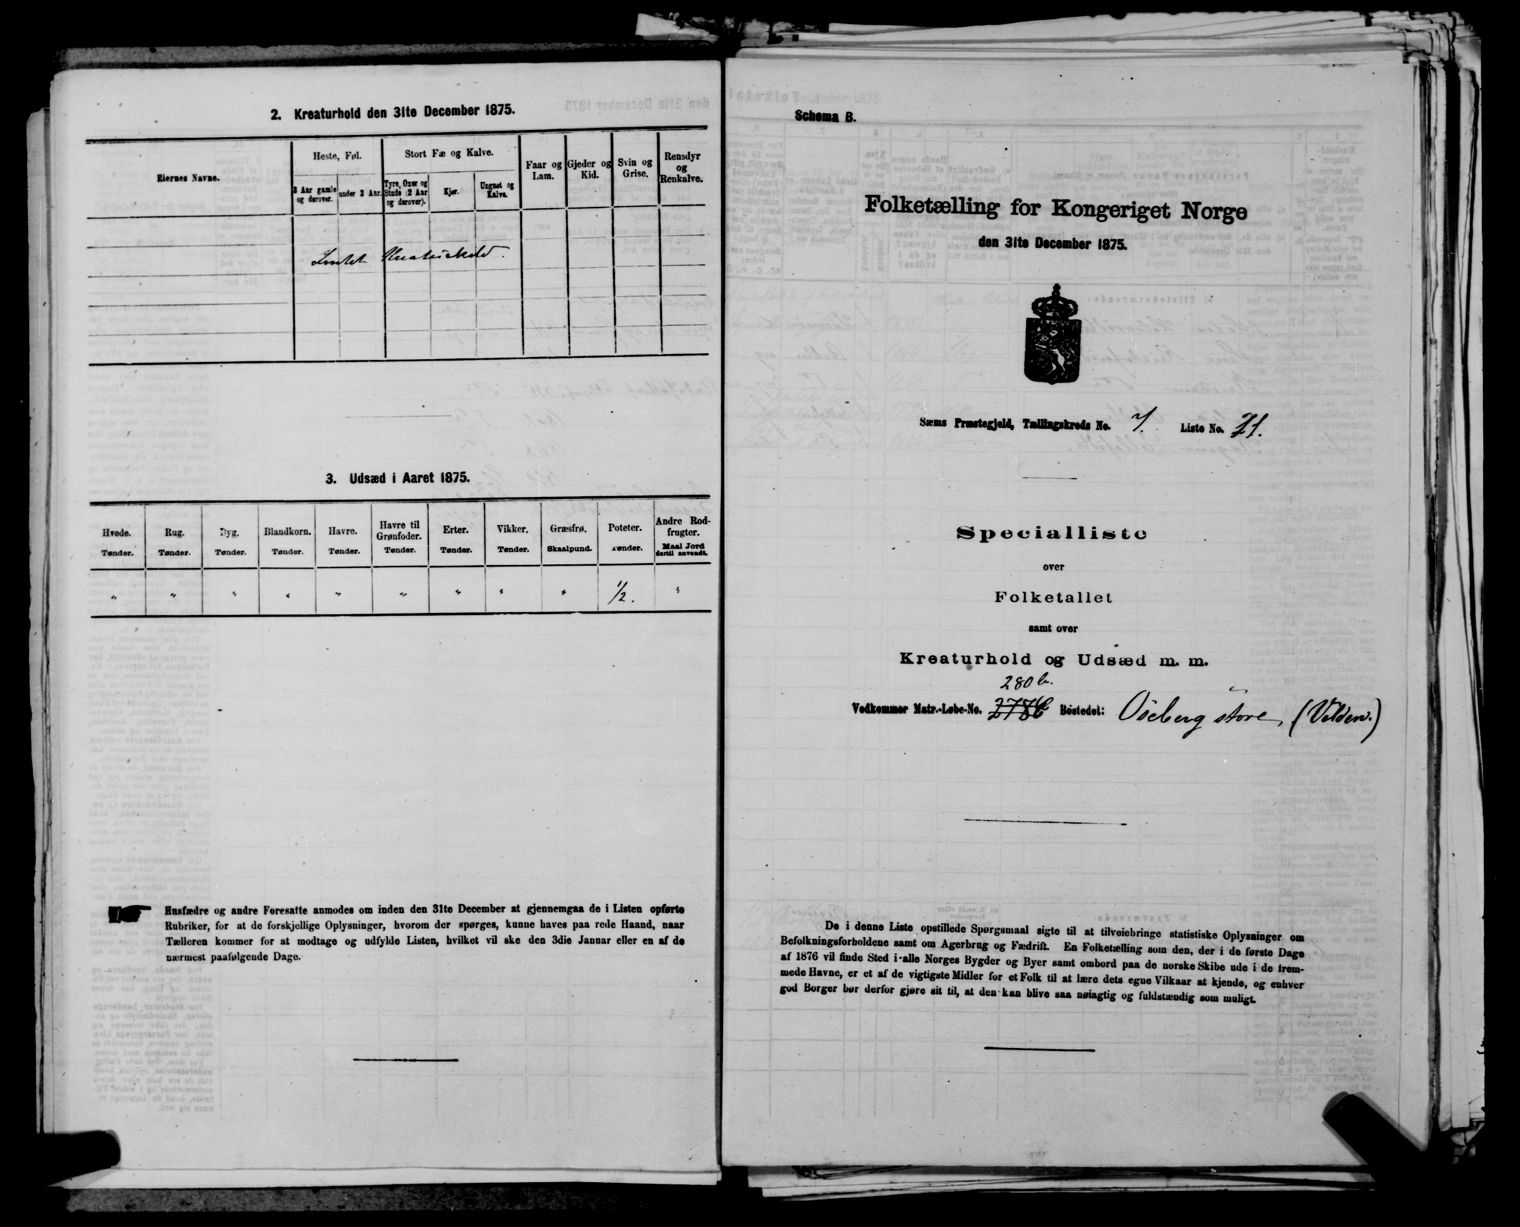 2. Kreaturhold den 31te December 1875.
Eiernes Navne.
Heste, Føl.
3 Aar gamle og derover.
under 3 Aar.
Stort Fæ og Kalve.
Tyre, Oxer og Stude (2 Aar og derover).
Kjør.
Ungnøt og Kalve.
Faar og Lam.
Gjeder og Kid.
Svin og Grise.
Rensdyr og Renkalve.
Intet Kreaturhold.
3. Udsæd i Aaret 1875.
Hvede. Rug. Byg. Blandkorn. Havre. Havre til Grønfoder. Erter. Vikker. Græsfrø. Poteter. Andre Rodfrugter.
Tønder. Tønder. Tønder. Tønder. Tønder. Tønder. Tønder. Tønder. Skaalpund. Tønder. Maal Jord dertil anvendt.
" " " " " " " " " 1/2. "
Husfædre og andre Foresatte anmodes om inden den 31te December at gjennemgaa de i Listen opførte
Rubriker, for at de forskjellige Oplysninger, hvorom der spørges, kunne haves paa rede Haand, naar
Tælleren kommer for at modtage og udfylde Listen, hvilket vil ske den 3die Januar eller en af de
nærmest paafølgende Dage.
Schema B.
Folketælling for Kongeriget Norge
den 31te December 1875.
Sæms Præstegjeld, Tællingskreds No. 7. Liste No. 21.
Specialliste
over
Folketallet
samt over
Kreaturhold og Udsæd m. m.
280 b.
Vedkommer Matr.-Løbe-No. Bostedet: Oseberg store, (Velden.)
De i denne Liste opstillede Spørgsmaal sigte til at tilveiebringe statistiske Oplysninger om
Befolkningsforholdene samt om Agerbrug og Fædrift. En Folketælling som den, der i de første Dage
af 1876 vil finde Sted i alle Norges Bygder og Byer samt ombord paa de norske Skibe ude i de frem-
mede Havne, er et af de vigtigste Midler for et Folk til at lære dets egne Vilkaar at kjende, og enhver
god Borger bør derfor gjøre sit til, at den kan blive saa nøiagtig og fuldstændig som muligt.